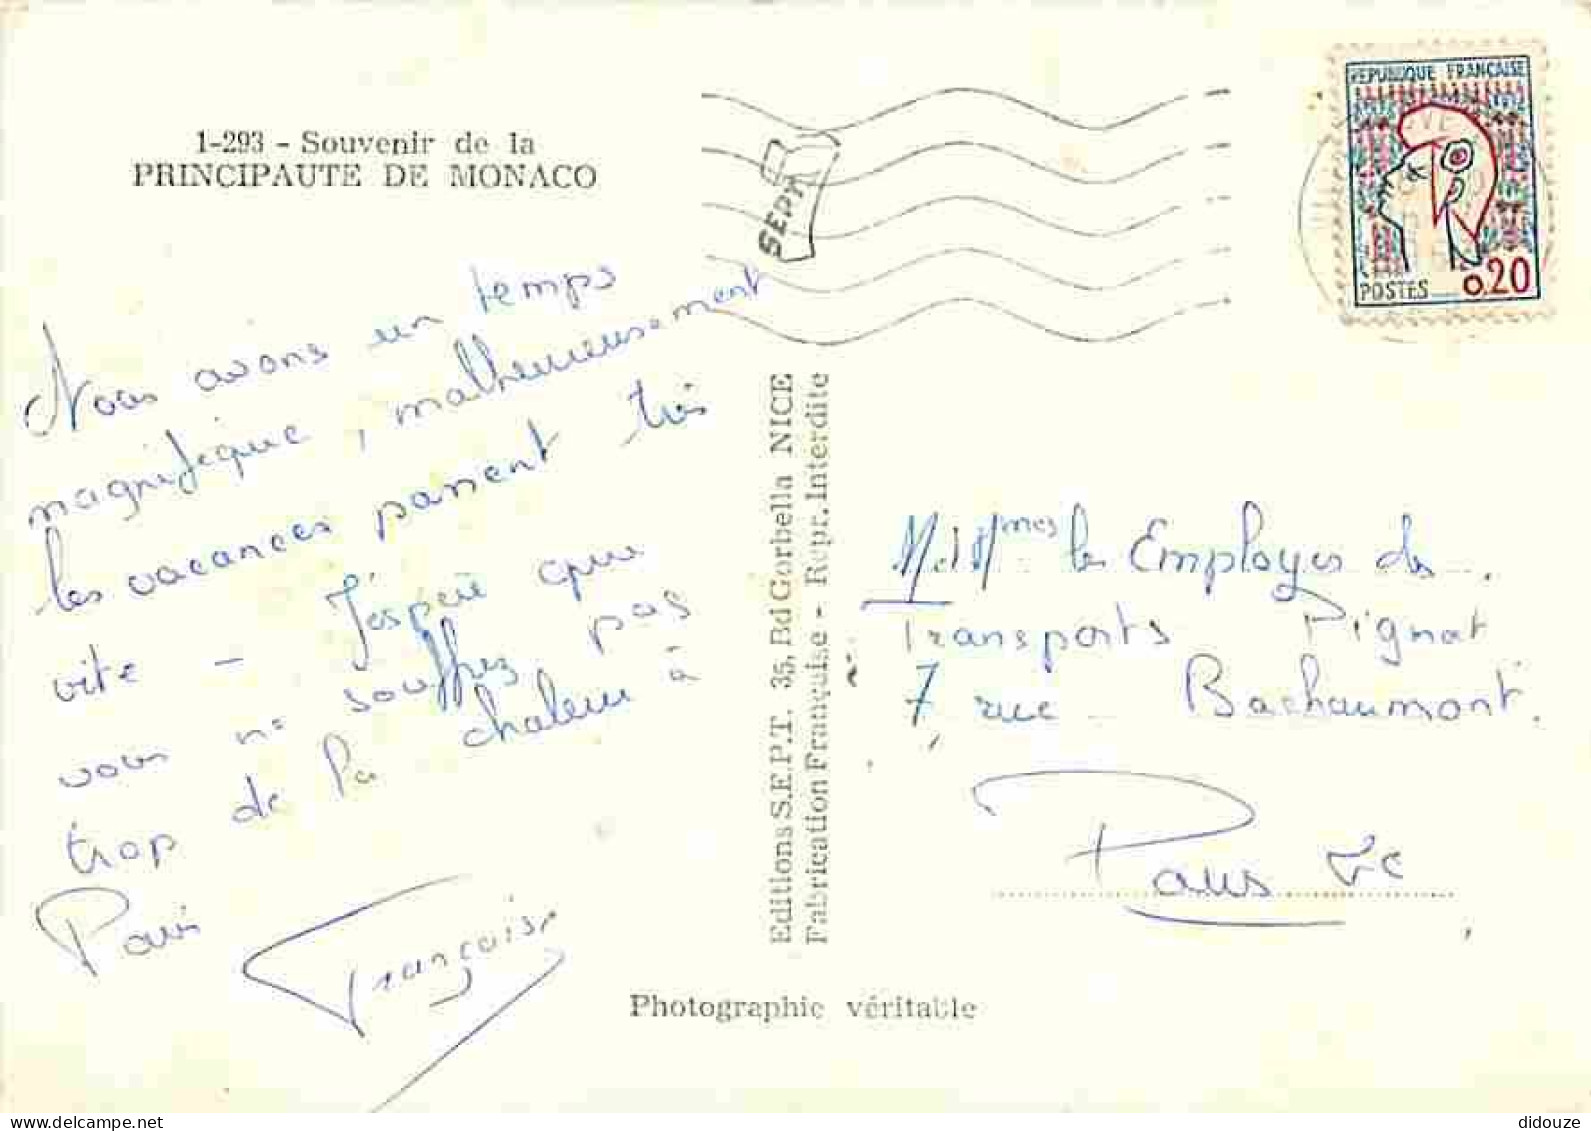 1-293 - Souvenir de la
PRINCIPAUTE DE MONACO
SEPT
REPUBLIQUE FRANÇAISE
POSTES 0.20
Nous avons un temps
magnifique, malheureusement
les vacances passent très
vite - J'espère que
vous ne souffrez pas
trop de la chaleur à
Paris
Françoise
Editions S.E.P.T. 35, Bd Gorbella NICE
Fabrication Française - Repr. Interdite
M. et Mmes les Employés des
Transports Pignat
7 rue Bachaumont.
Paris 2e
Photographie véritable
www.delcampe.net
didouze